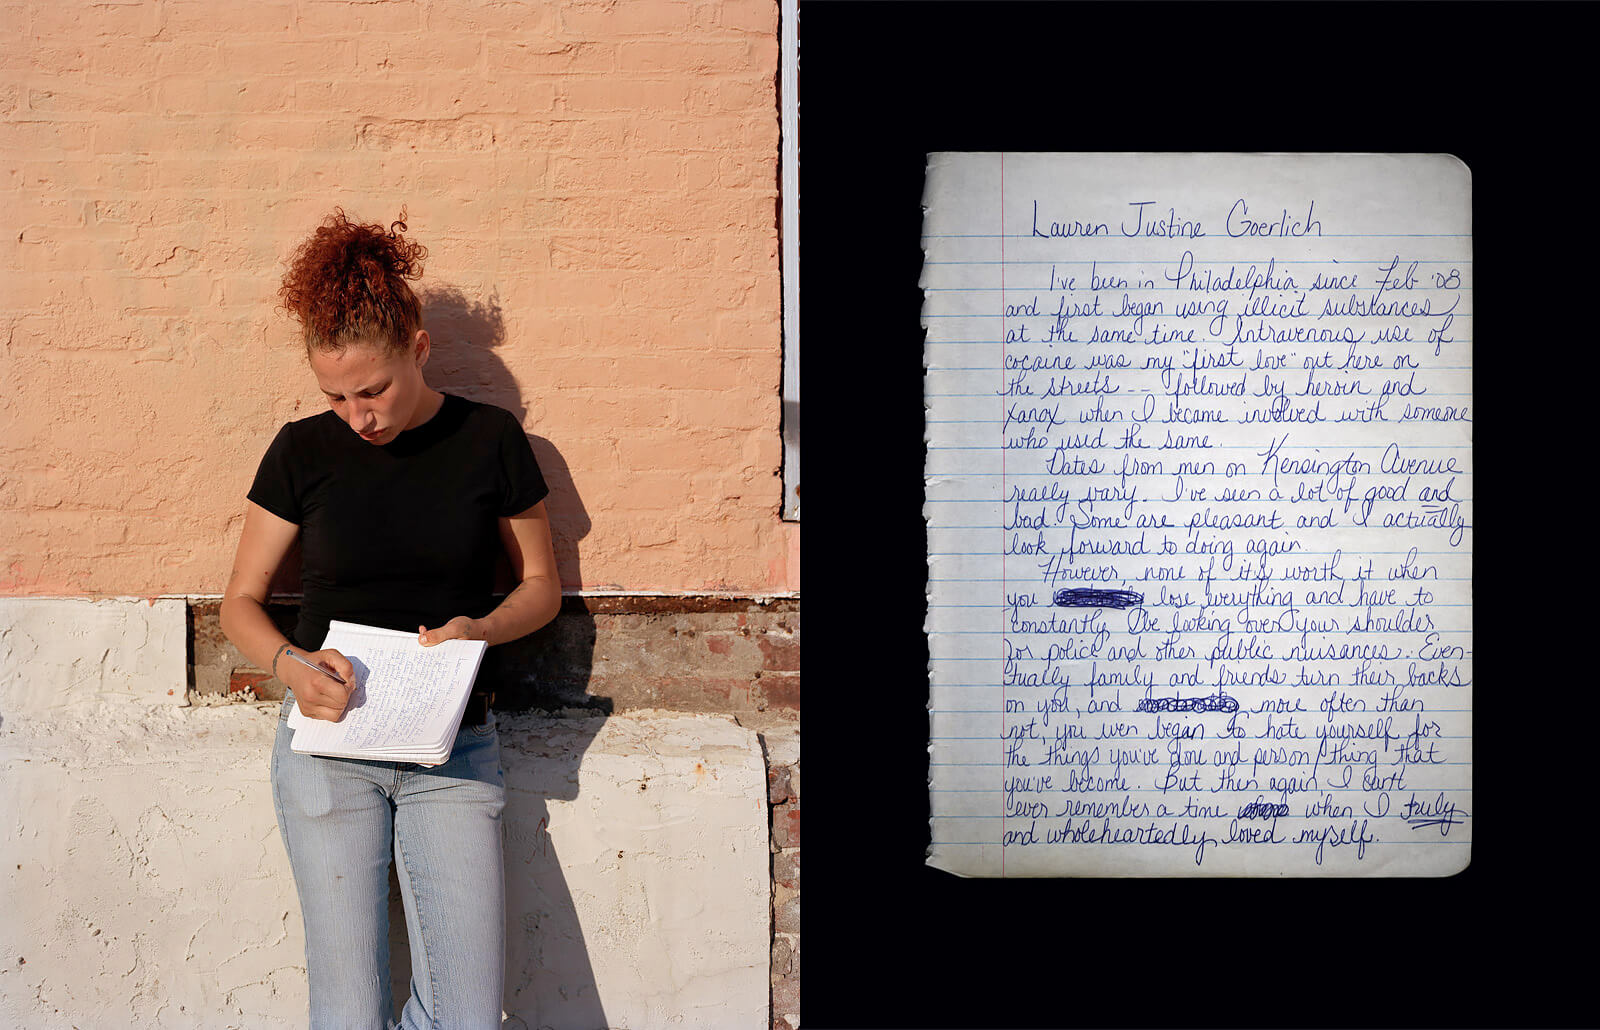 Lauren Justine Goerlich
I've been in Philadelphia since Feb '08
and first began using illicit substances
at the same time. Intravenous use of
cocaine was my "first love" out here on
the streets -- followed by heroin and
xanax when I became involved with someone
who used the same.
Dates from men on Kensington Avenue
really vary. I've seen a lot of good and
bad. Some are pleasant and I actually
look forward to doing again.
However, none of it's worth it when
you lose everything and have to
constantly be looking over your shoulder
for police and other public nuisances. Even-
tually family and friends turn their backs
on you, and more often than
not, you even began to hate yourself for
the things you've done and person/thing that
you've become. But then again, I can't
ever remember a time when I truly
and wholeheartedly loved myself.